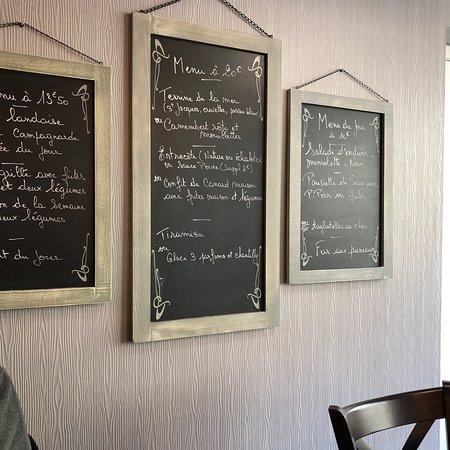 nu à 13€50
landaise
Campagnarde
du jour
avec frites
et deux légumes
de la semaine
deux légumes
du Jour
Menu à 20€
Terrine de la mer
(St Jacques, crevettes, poivre blanc)
ou
Camembert rôti et
mouillettes
Entrecôte (Nature ou échalotes)
ou sauce Poivre (suppl 2€)
ou
Confit de Canard maison
avec frites maison et légumes
Tiramisu
ou
Glace 3 parfums et chantilly
Menu du jour
Salade d'endives
mimolette. Noix
Paupiette de veau avec
P. Pois ou frites
ou
tagliatelles au choix
Far aux pruneaux